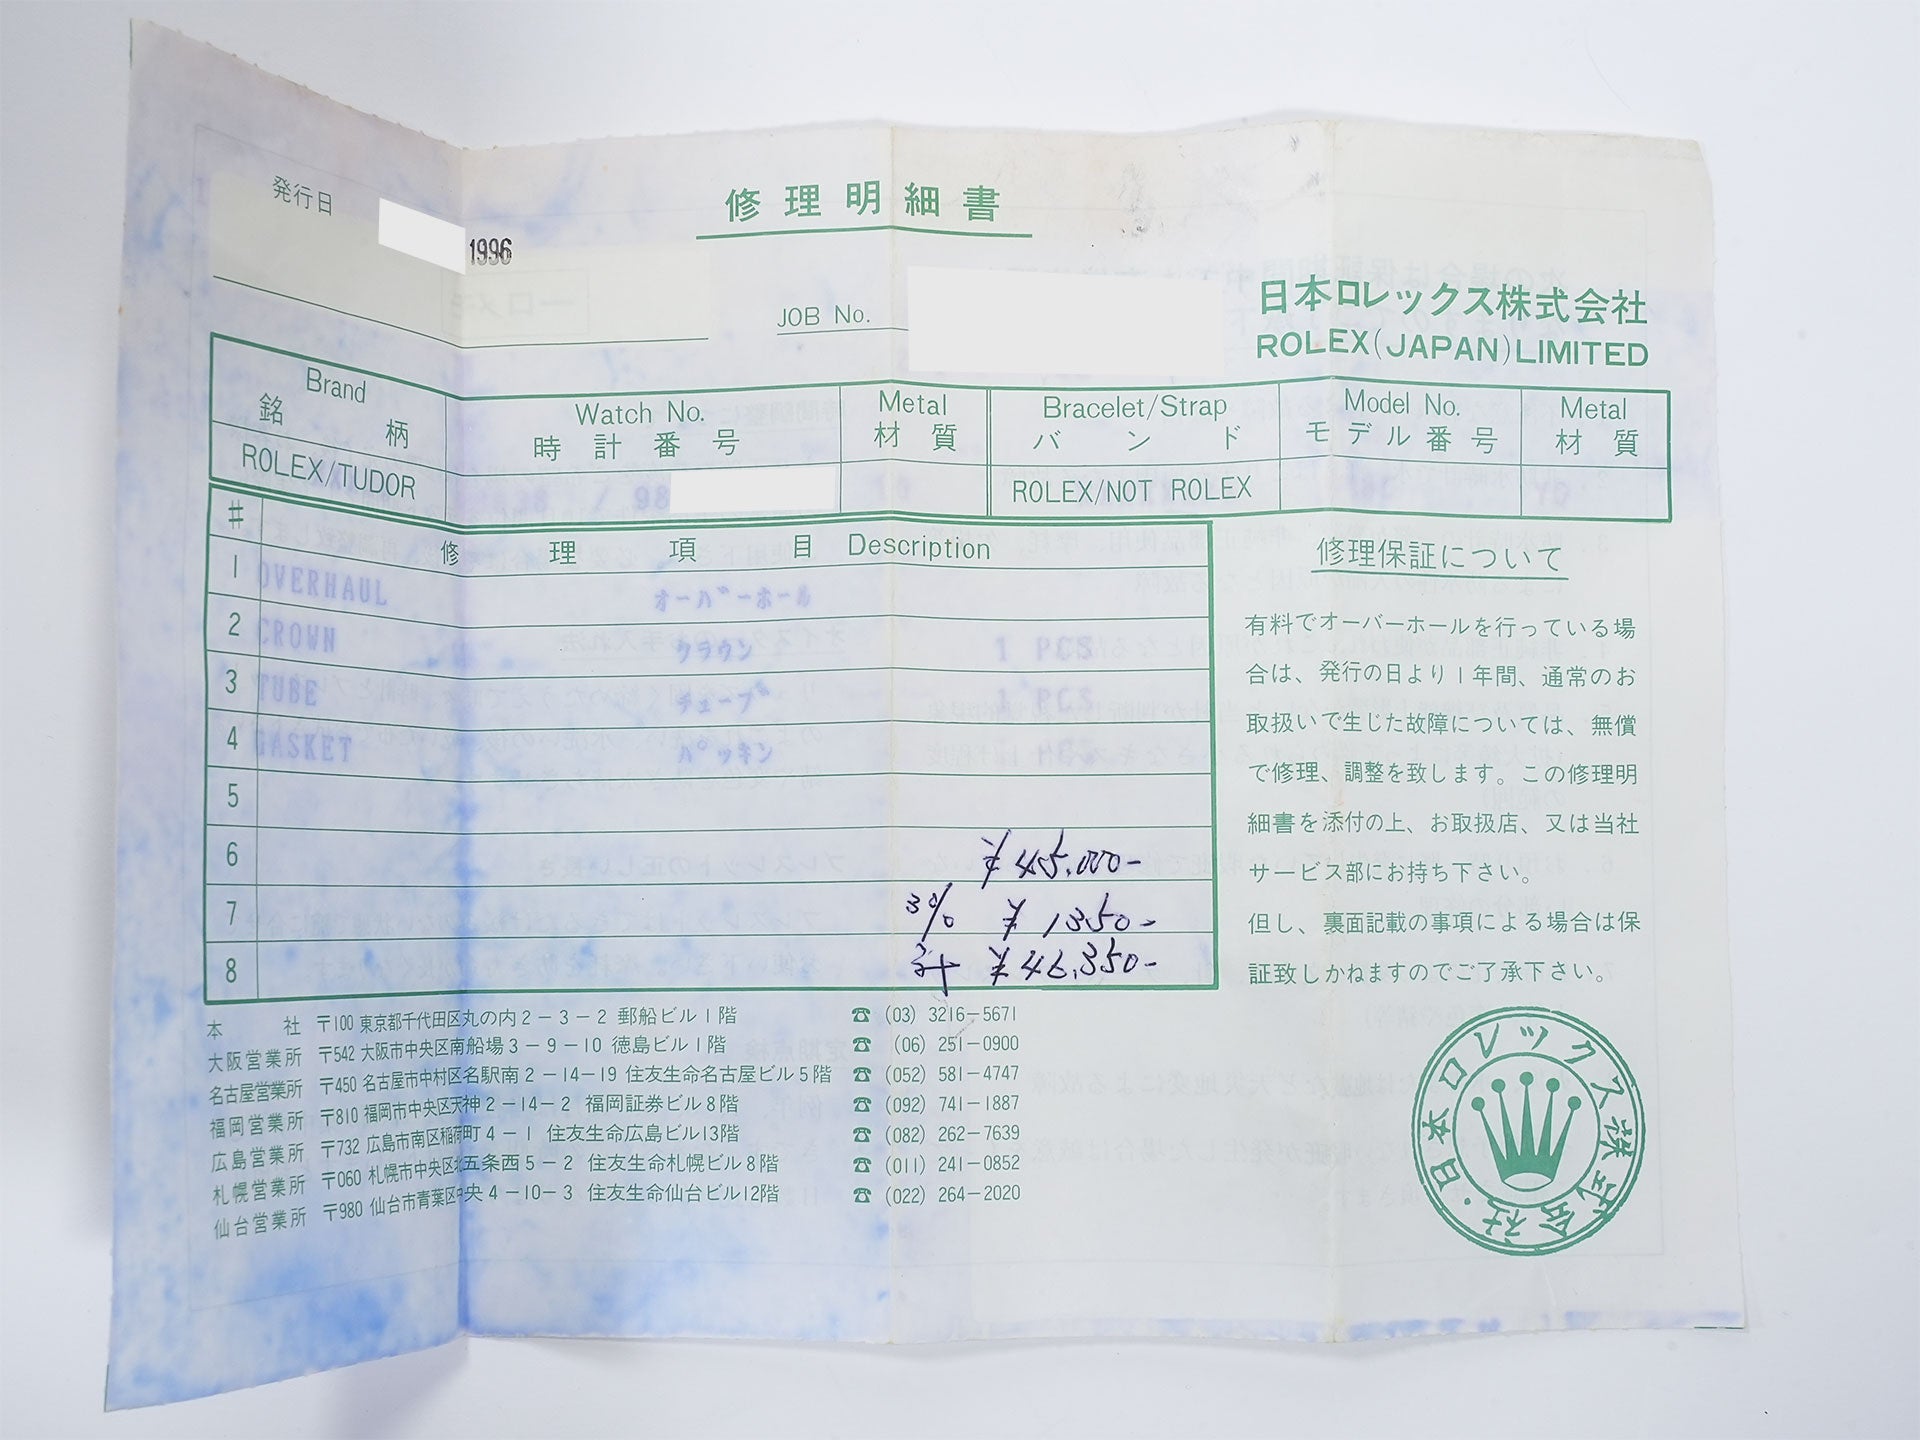 発行日
1996
修理明細書
JOB No.
日本ロレックス株式会社
ROLEX(JAPAN)LIMITED
Brand 銘柄 Watch No. 時計番号 Metal 材質 Bracelet/Strap バンド Model No. モデル番号 Metal 材質
ROLEX/TUDOR / 98 ROLEX/NOT ROLEX
# 修理項目 Description
1 OVERHAUL オーバーホール
2 CROWN クラウン 1 PCS
3 TUBE チューブ 1 PCS
4 GASKET パッキン
5
6 ¥45,000-
7 3% ¥1350-
8 計 ¥46,350-
修理保証について
有料でオーバーホールを行っている場
合は、発行の日より1年間、通常のお
取扱いで生じた故障については、無償
で修理、調整を致します。この修理明
細書を添付の上、お取扱店、又は当社
サービス部にお持ち下さい。
但し、裏面記載の事項による場合は保
証致しかねますのでご了承下さい。
本社 〒100 東京都千代田区丸の内2-3-2 郵船ビル1階 ☎ (03) 3216-5671
大阪営業所 〒542 大阪市中央区南船場3-9-10 徳島ビル1階 ☎ (06) 251-0900
名古屋営業所 〒450 名古屋市中村区名駅南2-14-19 住友生命名古屋ビル5階 ☎ (052) 581-4747
福岡営業所 〒810 福岡市中央区天神2-14-2 福岡証券ビル8階 ☎ (092) 741-1887
広島営業所 〒732 広島市南区稲荷町4-1 住友生命広島ビル13階 ☎ (082) 262-7639
札幌営業所 〒060 札幌市中央区北五条西5-2 住友生命札幌ビル8階 ☎ (011) 241-0852
仙台営業所 〒980 仙台市青葉区中央4-10-3 住友生命仙台ビル12階 ☎ (022) 264-2020
・日本ロレックス株式会社